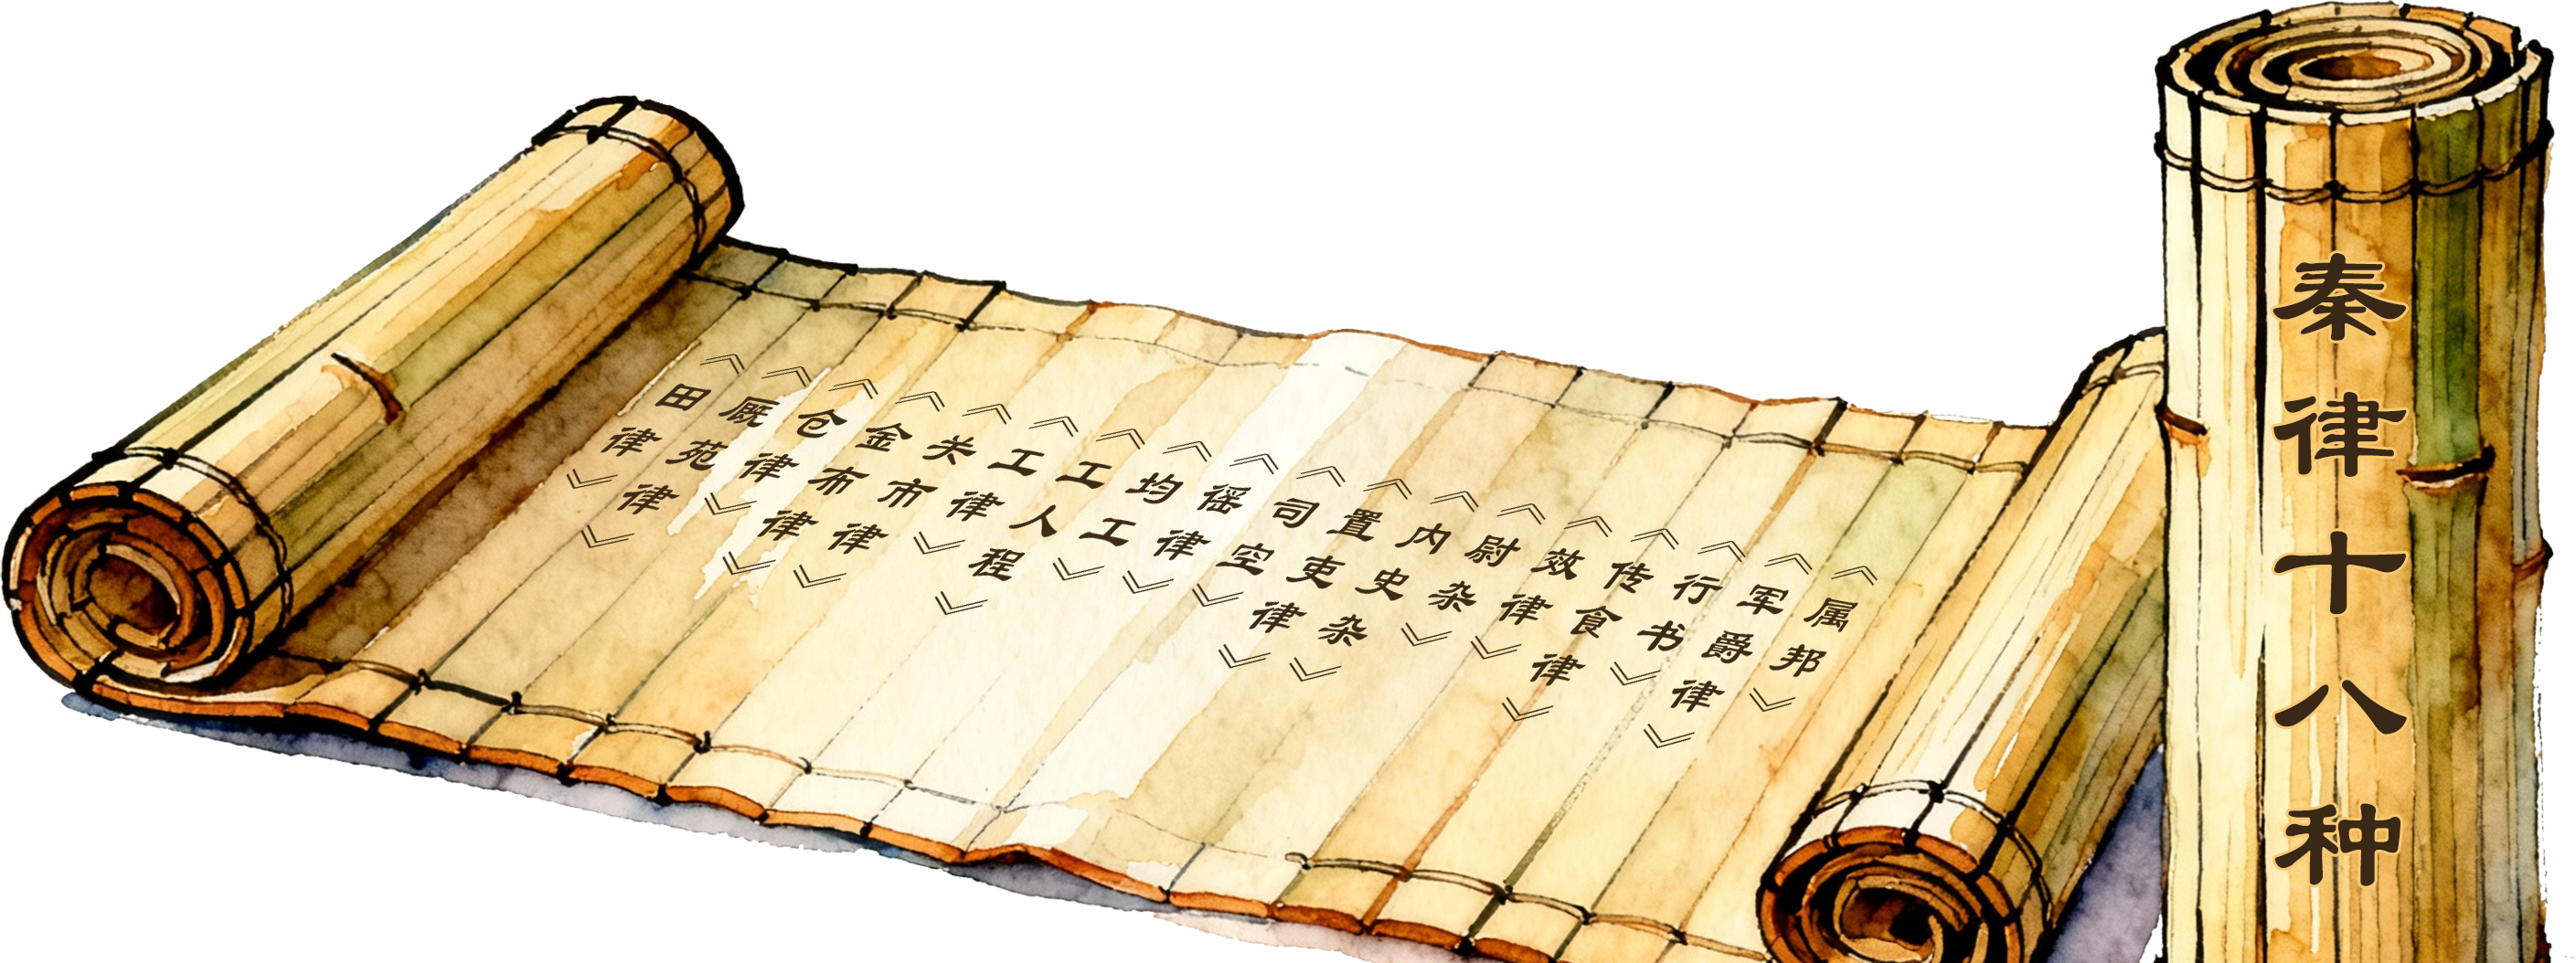 秦律十八种
《田律》
《厩苑律》
《仓律》
《金布律》
《关市律》
《工律》
《工人程》
《均工》
《徭律》
《司空》
《置吏律》
《内史杂》
《尉杂》
《效律》
《传食律》
《行书》
《军爵律》
《属邦》